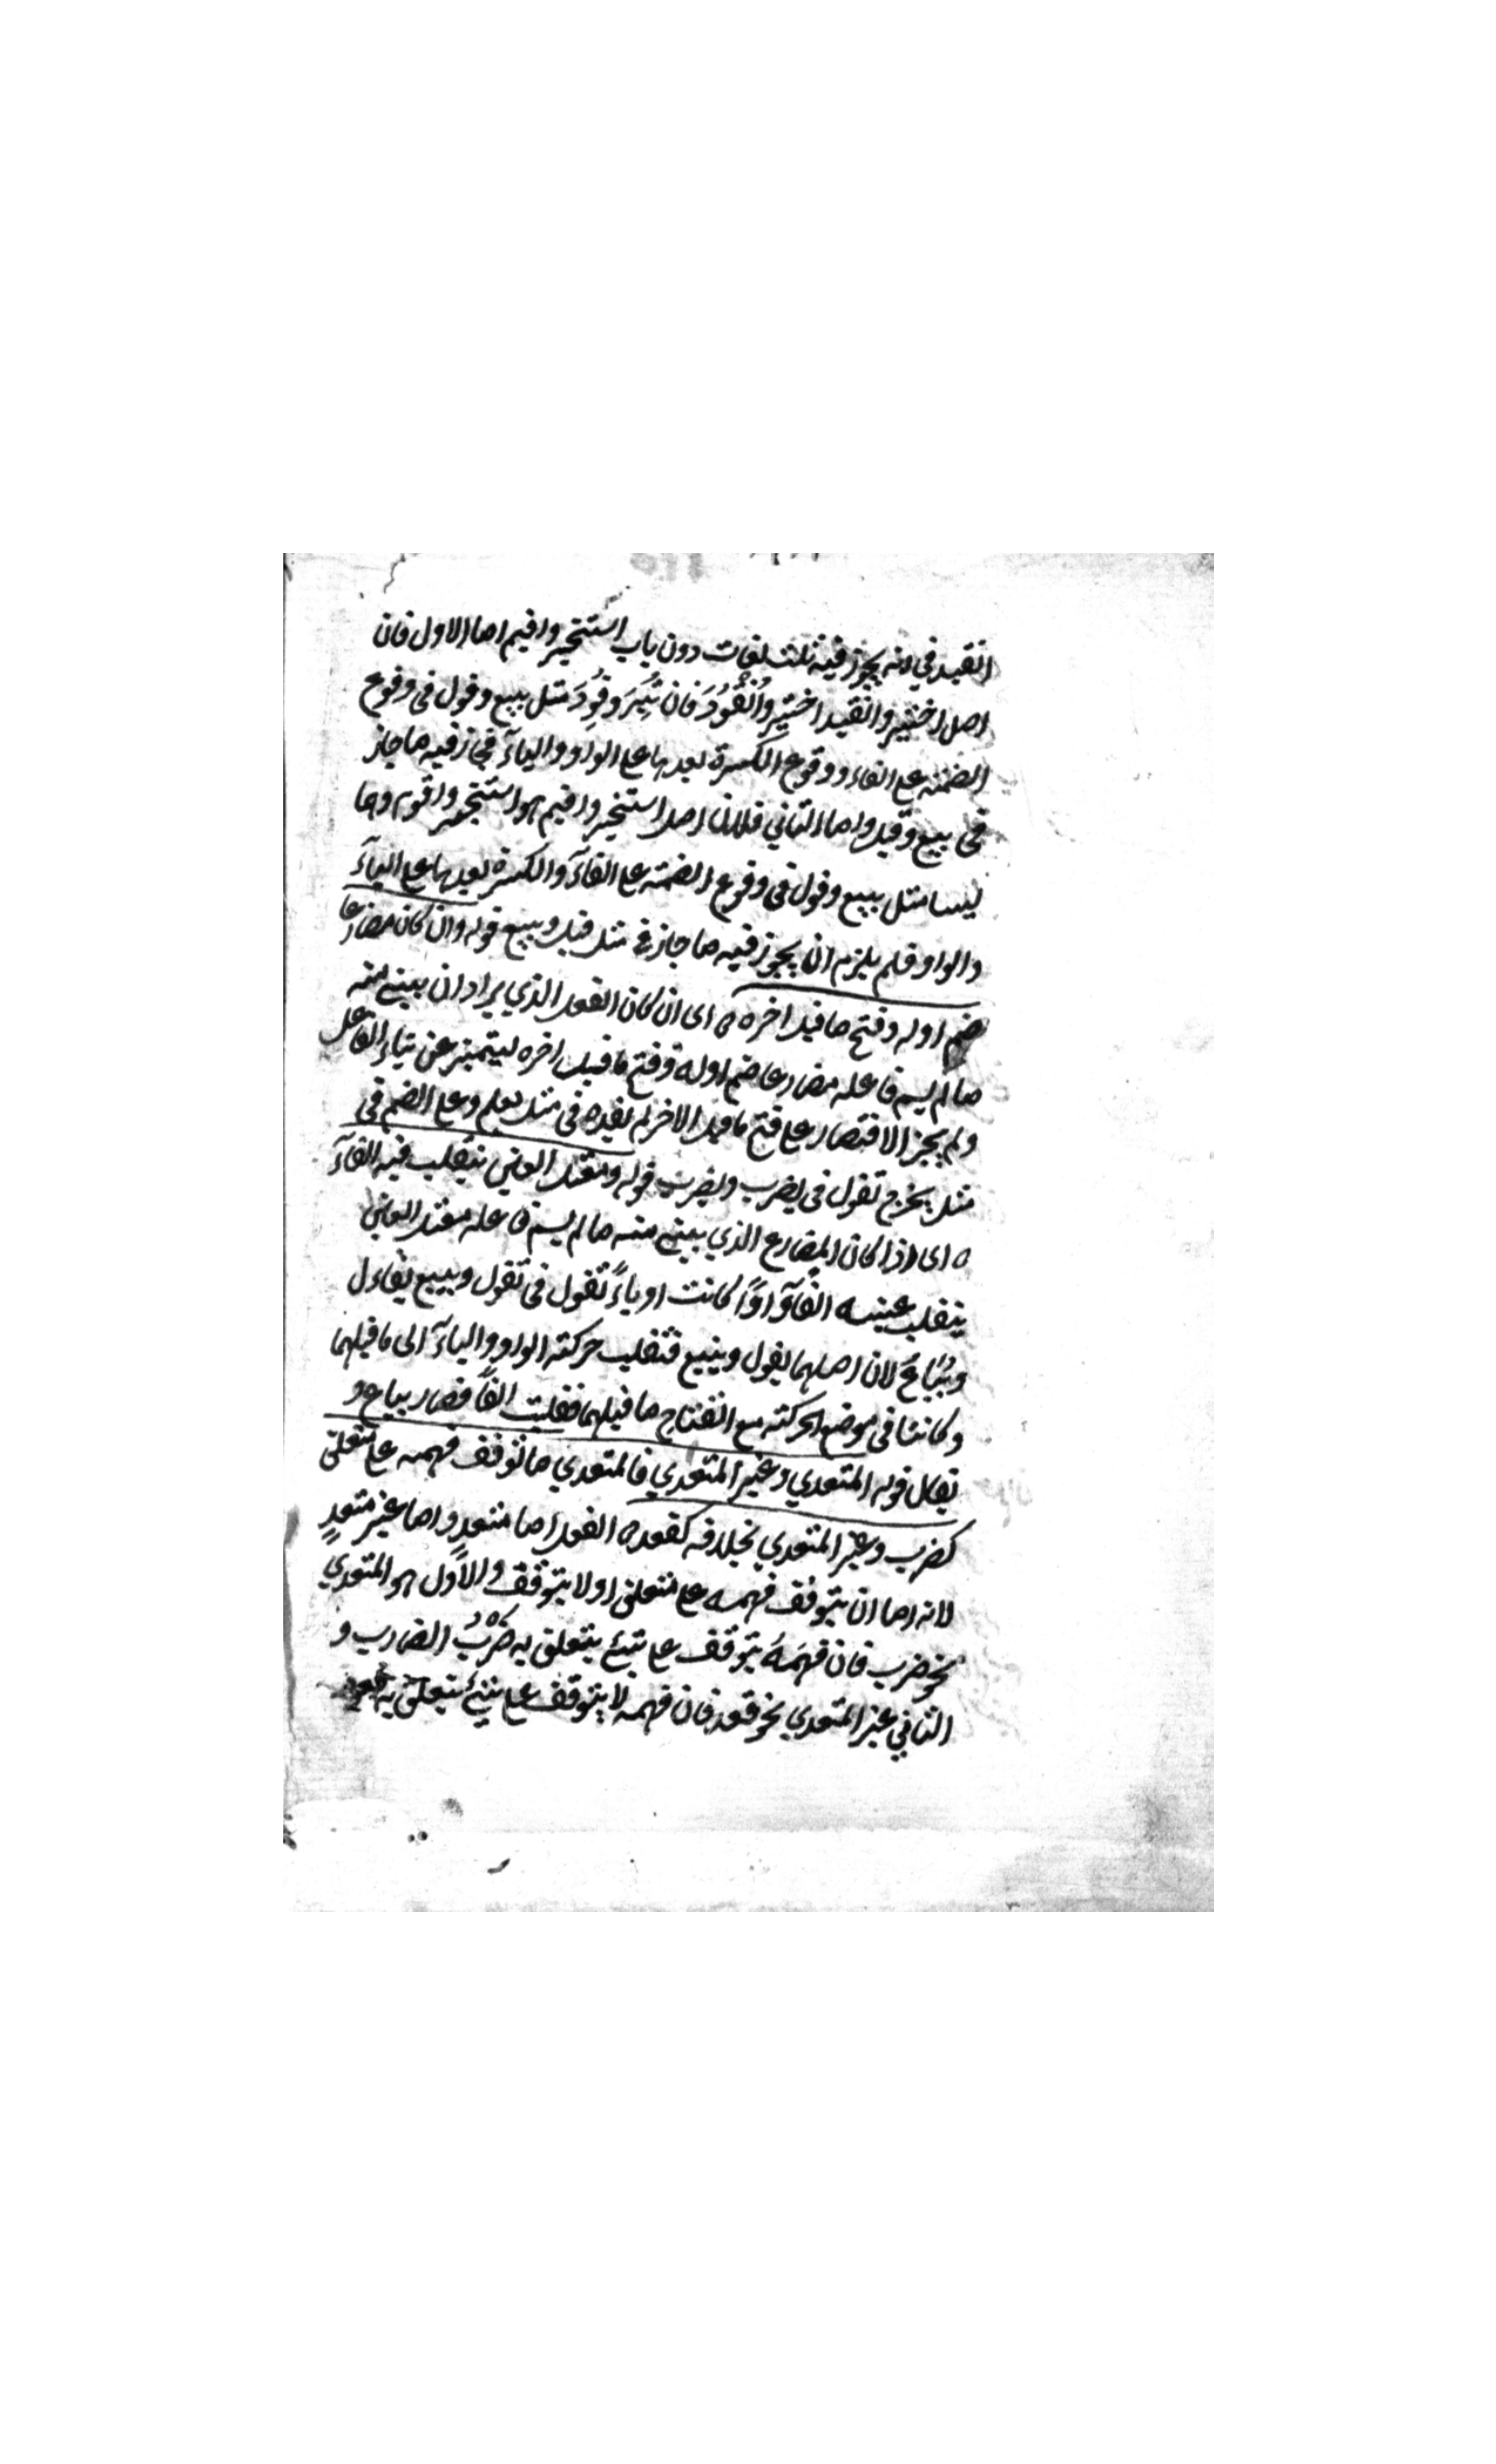 انقيد في انه يجوز فيه ثلث لغات دون باب استخير واقيم اما الاول فان
اصل اختير وانقيد اختير وانقود فان تير وقود مثل بيع وقول في وقوع
الضمة على الفاء ووقوع الكسرة بعدها على الواو والياء فيجوز فيه ما جاز
في بيع وقيل واما الثاني فلان اصل استخير واقيم هو استخير واقوم وهما
ليسا مثل بيع وقول في وقوع الضمة على الفاء والكسرة بعدها على الياء
والواو فلم يلزم ان يجوز فيه ما جاز في مثل قيل وبيع قوله وان كان مضارعا
ضم اوله وفتح ما قبل اخره ه اى ان كان الفعل الذي يراد ان يبنى منه
ما لم يسم فاعله مضارعا ضم اوله وفتح ما قبل اخره ليتميز عن بناء الفاعل
ولم يجز الاقتصار على فتح ما قبل الاخر لم يفده في مثل يعلم وعلى الضم في
مثل يخرج تقول في يضرب ويضرب قوله ومعتل العين ينقلب فيه الفاء
ه اى اذا كان المضارع الذي يبنى منه ما لم يسم فاعله معتل العين
ينقلب عينه الفا واوا كانت او ياء تقول في تقول ويبيع يقاول
ويباع لان اصلهما يقول ويبيع فنقلب حركة الواو والياء الى ما قبلهما
وكانتا في موضع الحركة مع انفتاح ما قبلهما فقلبت الفا فصار يباع و
يقال قوله المتعدي وغير المتعدي فالمتعدي ما توقف فهمه على متعلق
كضرب وغير المتعدي بخلافه كقعد ه الفعل اما متعد واما غير متعد
لانه اما ان يتوقف فهمه على متعلق او لا يتوقف والاول هو المتعدي
نحو ضرب فان فهمه يتوقف على شيء يتعلق به ضرب الضارب و
الثاني غير المتعدي نحو قعد فان فهمه لا يتوقف على شيء يتعلق به